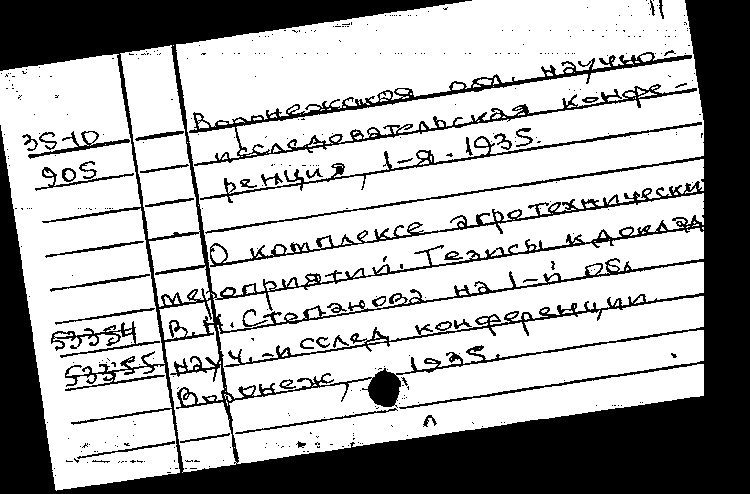 35-10
905
Воронежская обл. научно-
исследовательская конфе-
ренция, 1-я. 1935.
О комплексе агротехнически
мероприятий. Тезисы к доклад
В.Н. Степанова на 1-й Обл
науч.-исслед. конференции.
Воронеж, 1935.
53354
53355